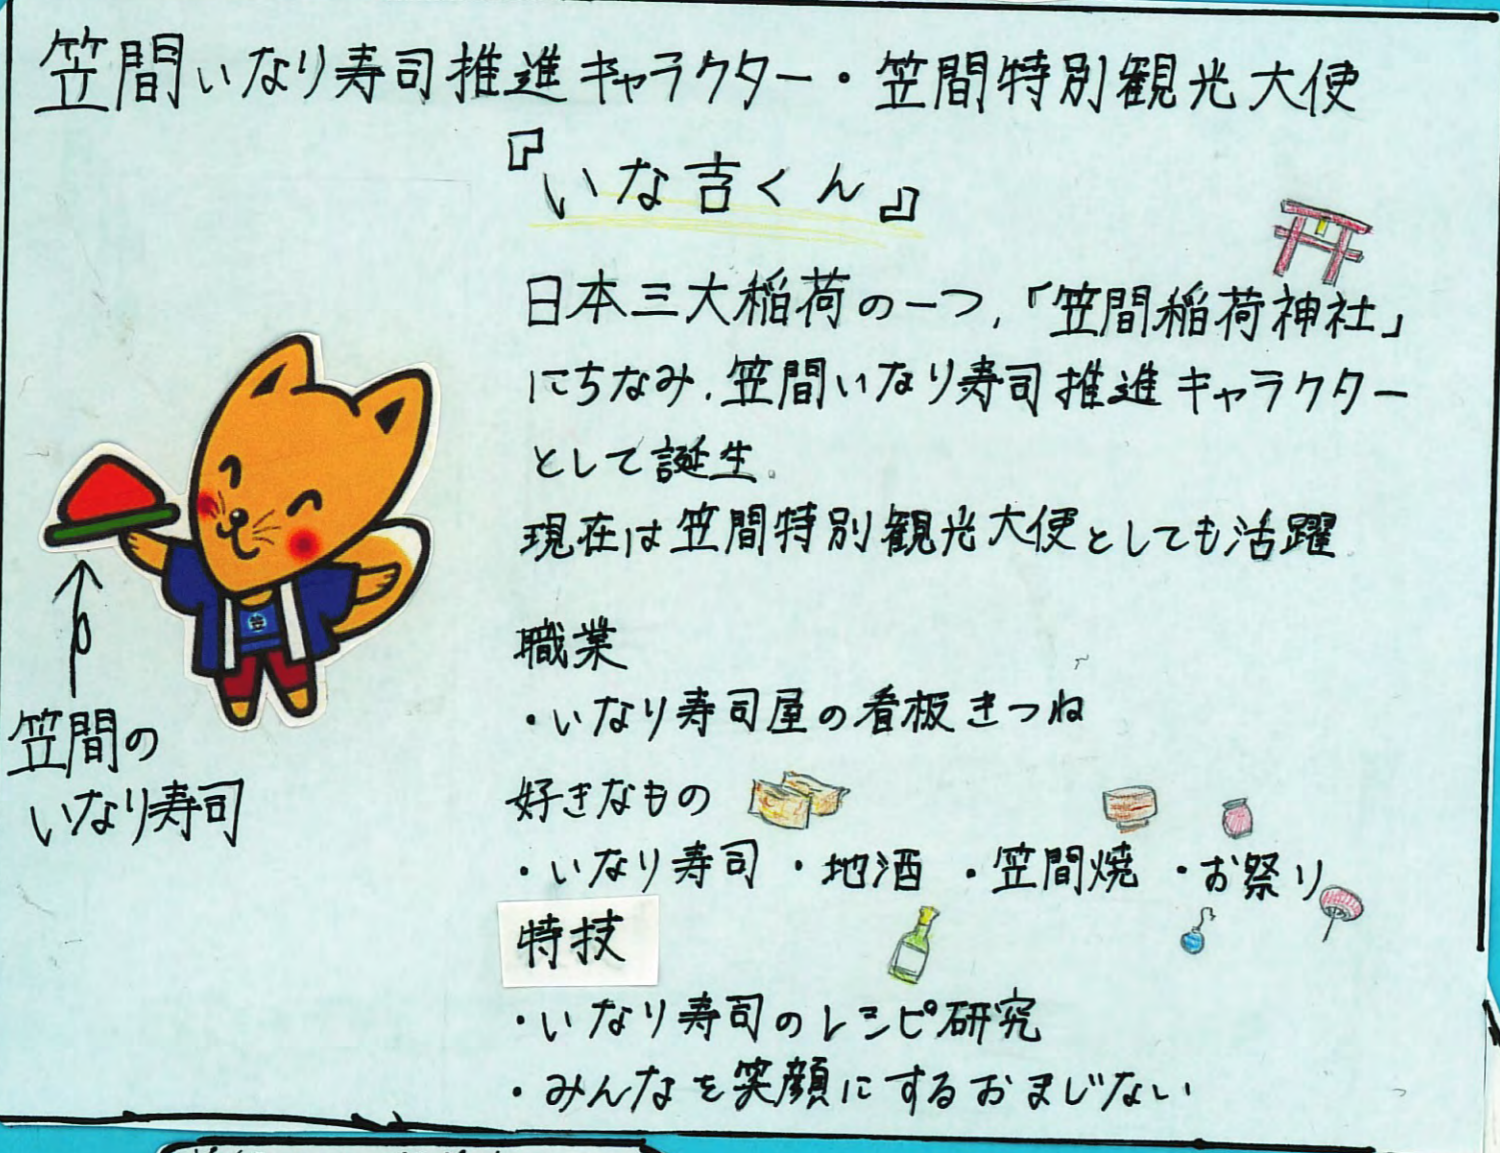 笠間いなり寿司推進キャラクター・笠間特別観光大使
『いな吉くん』
日本三大稲荷の一つ、「笠間稲荷神社」
にちなみ、笠間いなり寿司推進キャラクター
として誕生。
現在は笠間特別観光大使としても活躍
職業
・いなり寿司屋の看板きつね
好きなもの
・いなり寿司 ・地酒 ・笠間焼 ・お祭り
特技
・いなり寿司のレシピ研究
・みんなを笑顔にするおまじない
笠
笠間の
いなり寿司